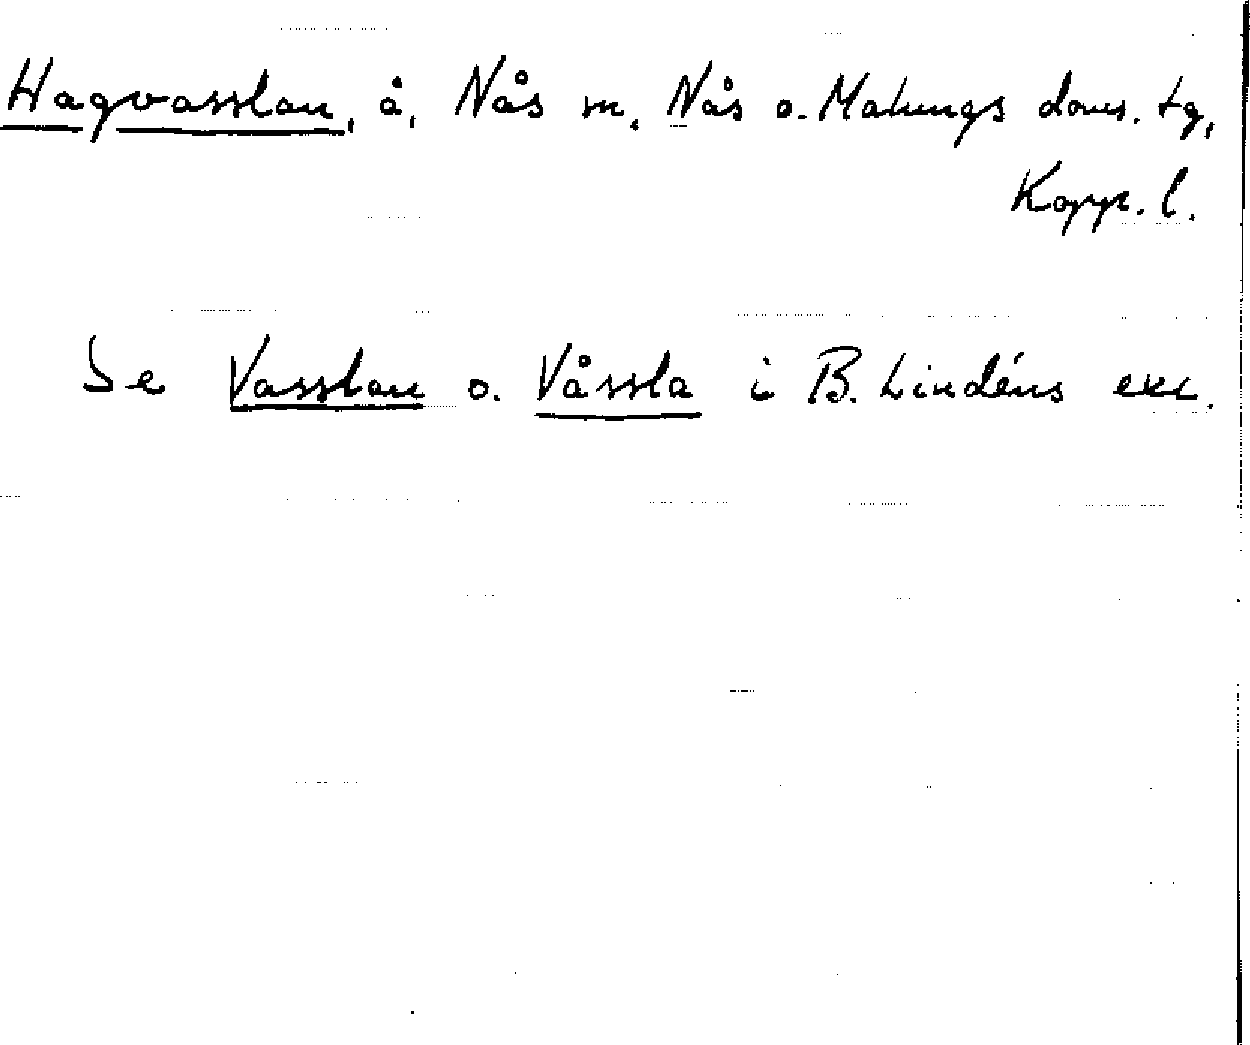 Hagvasslan, å, Nås sn, Nås o. Malungs doms. tg,
Kopp. l.
Se Vasslan o. Våssla i B. Lindéns exc.